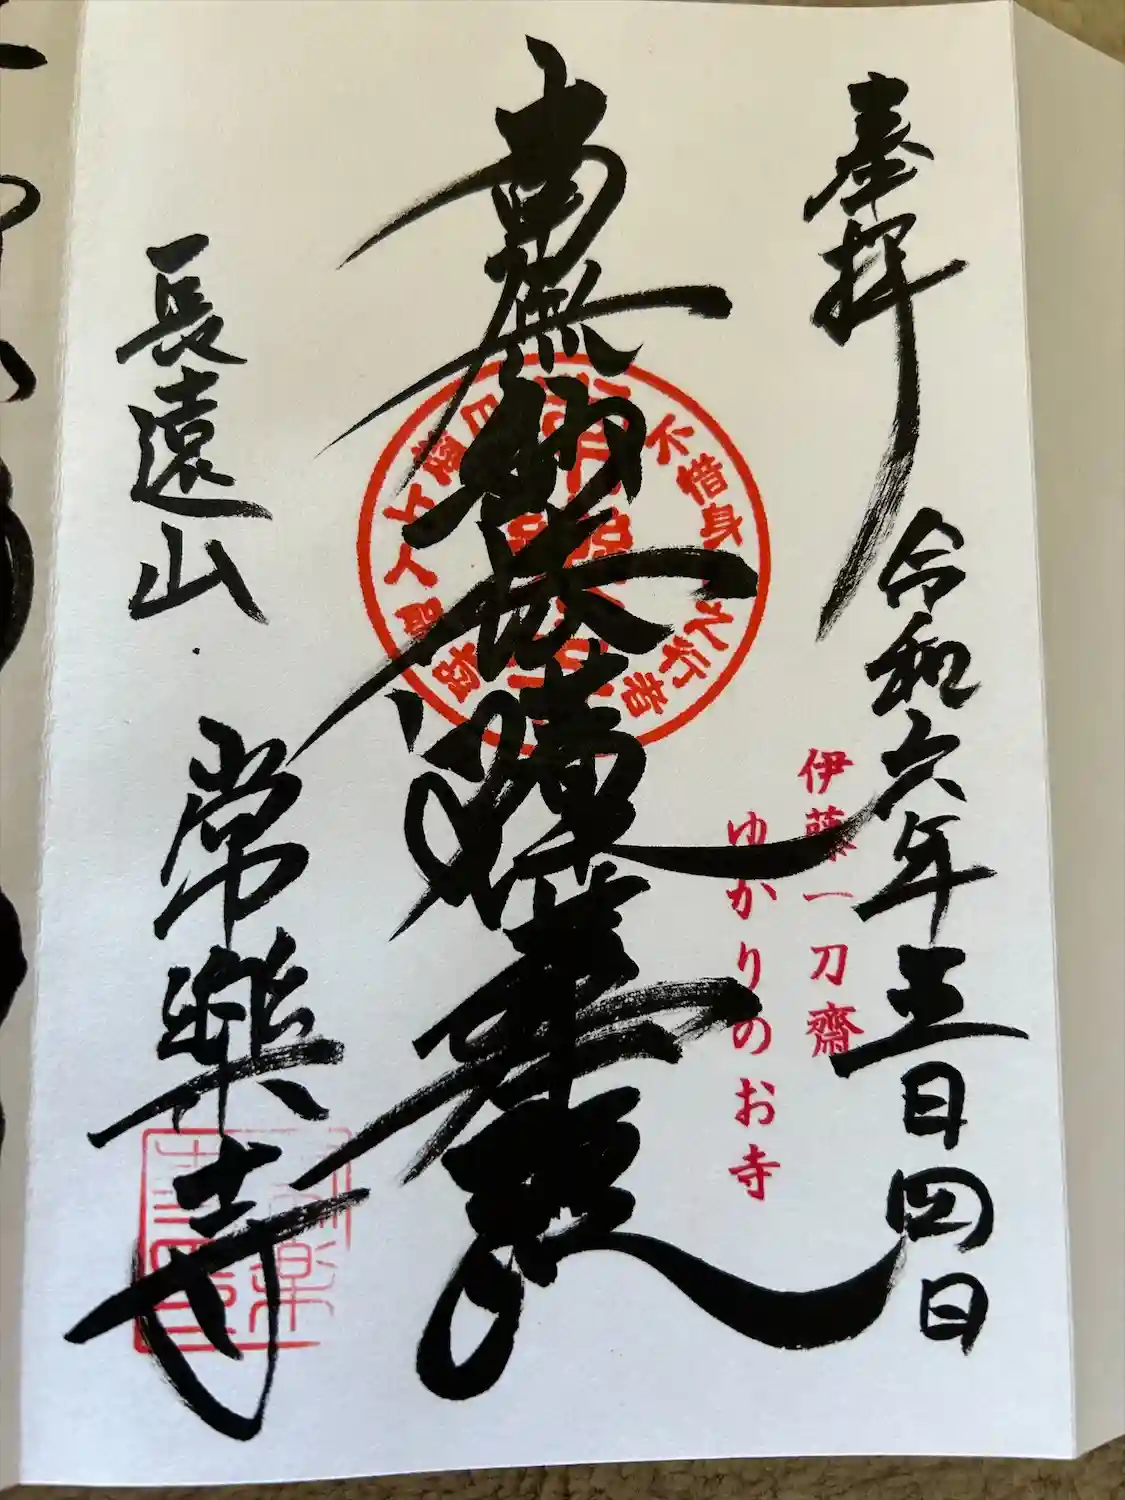 奉拝
令和六年五月四日
伊藤一刀齋
ゆかりのお寺
南無妙法蓮華經
不惜身
之行者
長遠山
常樂寺